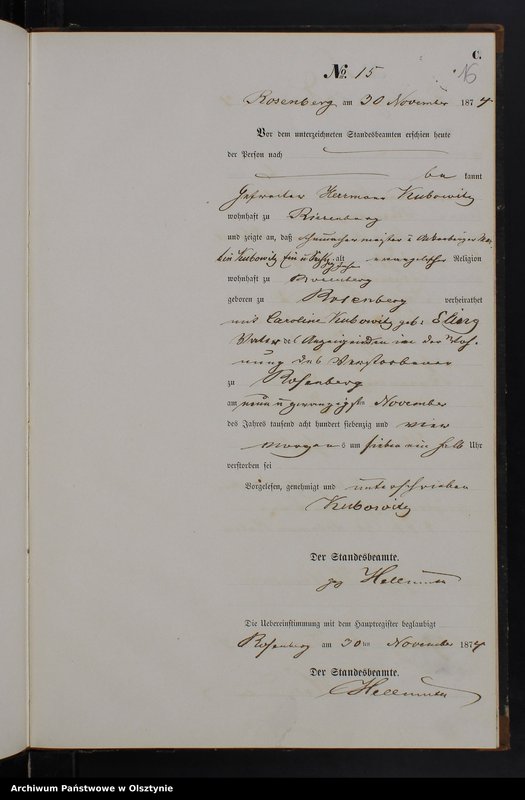 C.
No. 15
Rosenberg am 30 November 1874
Vor dem unterzeichneten Standesbeamten erschien heute
der Person nach
be kannt
Gefreiter Herrmann Kubowitz
wohnhaft zu Riesenburg
und zeigte an, daß Schumachermeister u Ackerbürger
Kubowitz Ein u Sechszig Jahre alt evangelischer Religion
wohnhaft zu Rosenberg
geboren zu Rosenberg verheirathet
mit Caroline Kubowitz geb:
Vater des Anzeigenden in der Woh-
nung des Verstorbenen
zu Rosenberg
am neun u zwanzigsten November
des Jahres tausend acht hundert siebenzig und vier
Morgens um sieben ein halb Uhr
verstorben sei
Vorgelesen, genehmigt und unterschrieben
Kubowitz
Der Standesbeamte.
Die Uebereinstimmung mit dem Hauptregister beglaubigt
Rosenberg am 30ten November 1874
Der Standesbeamte.
Archiwum Państwowe w Olsztynie